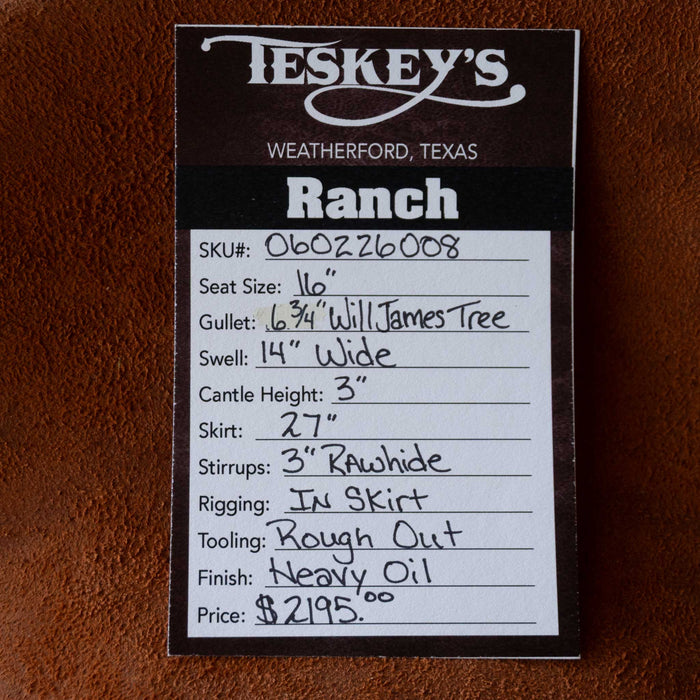 TESKEY'S
WEATHERFORD, TEXAS
Ranch
SKU#: 060226008
Seat Size: 16"
Gullet: 6 3/4" Will James Tree
Swell: 14" Wide
Cantle Height: 3"
Skirt: 27"
Stirrups: 3" RAwhide
Rigging: IN SKirt
Tooling: Rough Out
Finish: Heavy Oil
Price: $2195.00